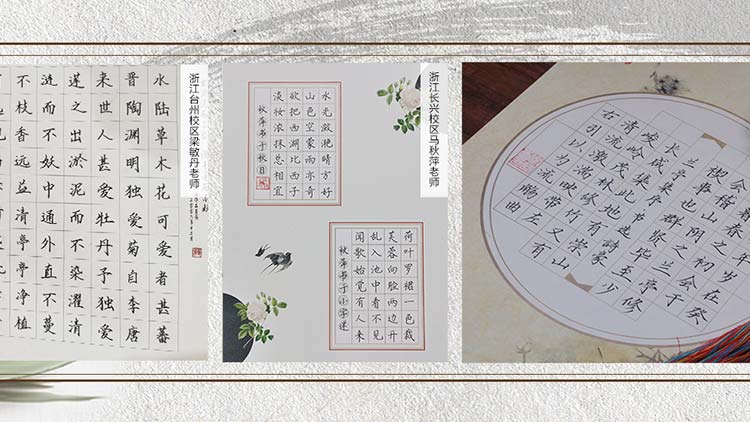 水陆草木花可爱者甚蕃
晋陶渊明独爱菊自李唐
来世人甚爱牡丹予独爱
莲之出淤泥而不染濯清
涟而不妖中通外直不蔓
不枝香远益清亭亭净植
浙江台州校区梁敏丹老师
水光潋滟晴方好
山色空蒙雨亦奇
欲把西湖比西子
淡妆浓抹总相宜
秋萍书于秋日
荷叶罗裙一色裁
芙蓉向脸两边开
乱入池中看不见
闻歌始觉有人来
秋萍书于小字迷
浙江长兴校区马秋萍老师
年岁在癸
禊事也群贤毕至少
清流激湍映带左
右引以为流觞曲